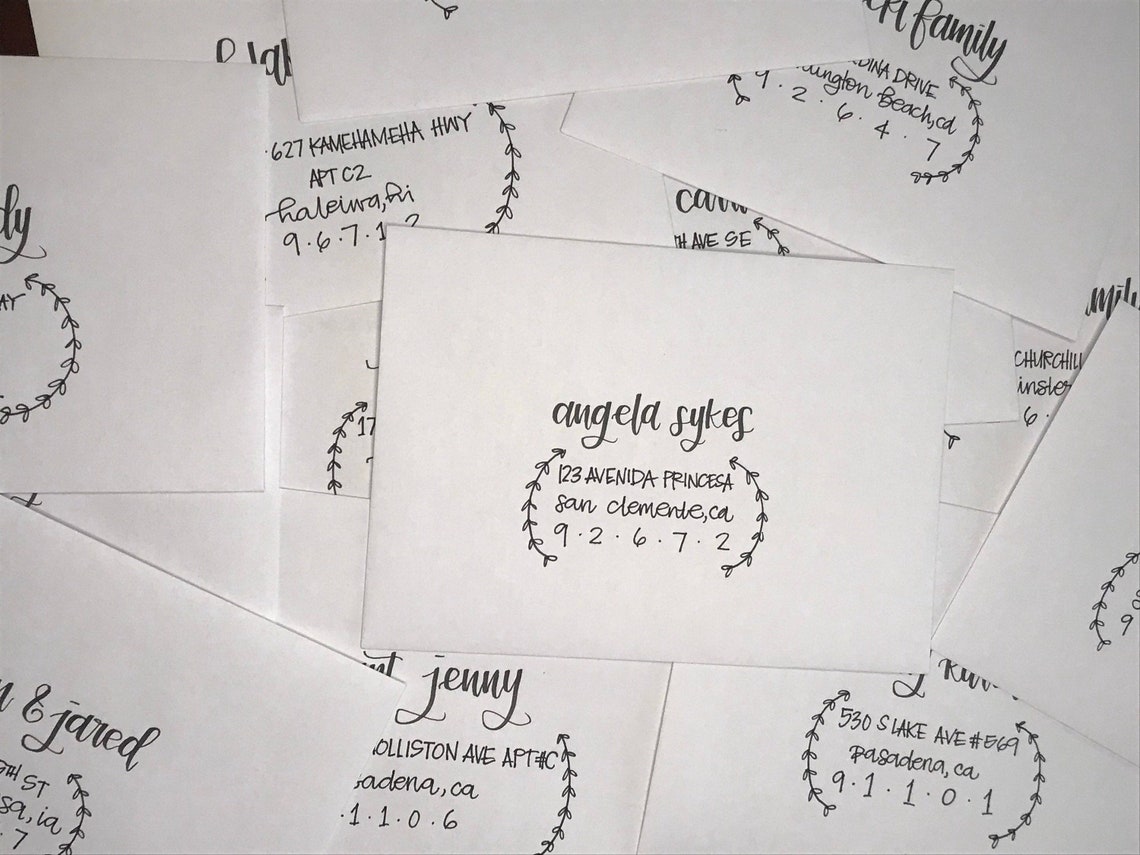 family
DRIVE
Beach, ca
6 . 4 . 7
9 . 2 .
627 KAMEHAMEHA HWY
APT C2
haleiwa, hi
9 . 6 . 7 . 1
AVE SE
CHURCHILL
6 .
17
angela sykes
123 AVENIDA PRINCESA
san clemente, ca
9 . 2 . 6 . 7 . 2
& jared
ST
ia
7
jenny
AVE APT#C
ca
1 . 1 . 0 . 6
530 S LAKE AVE #569
pasadena, ca
9 . 1 . 1 . 0 . 1
9